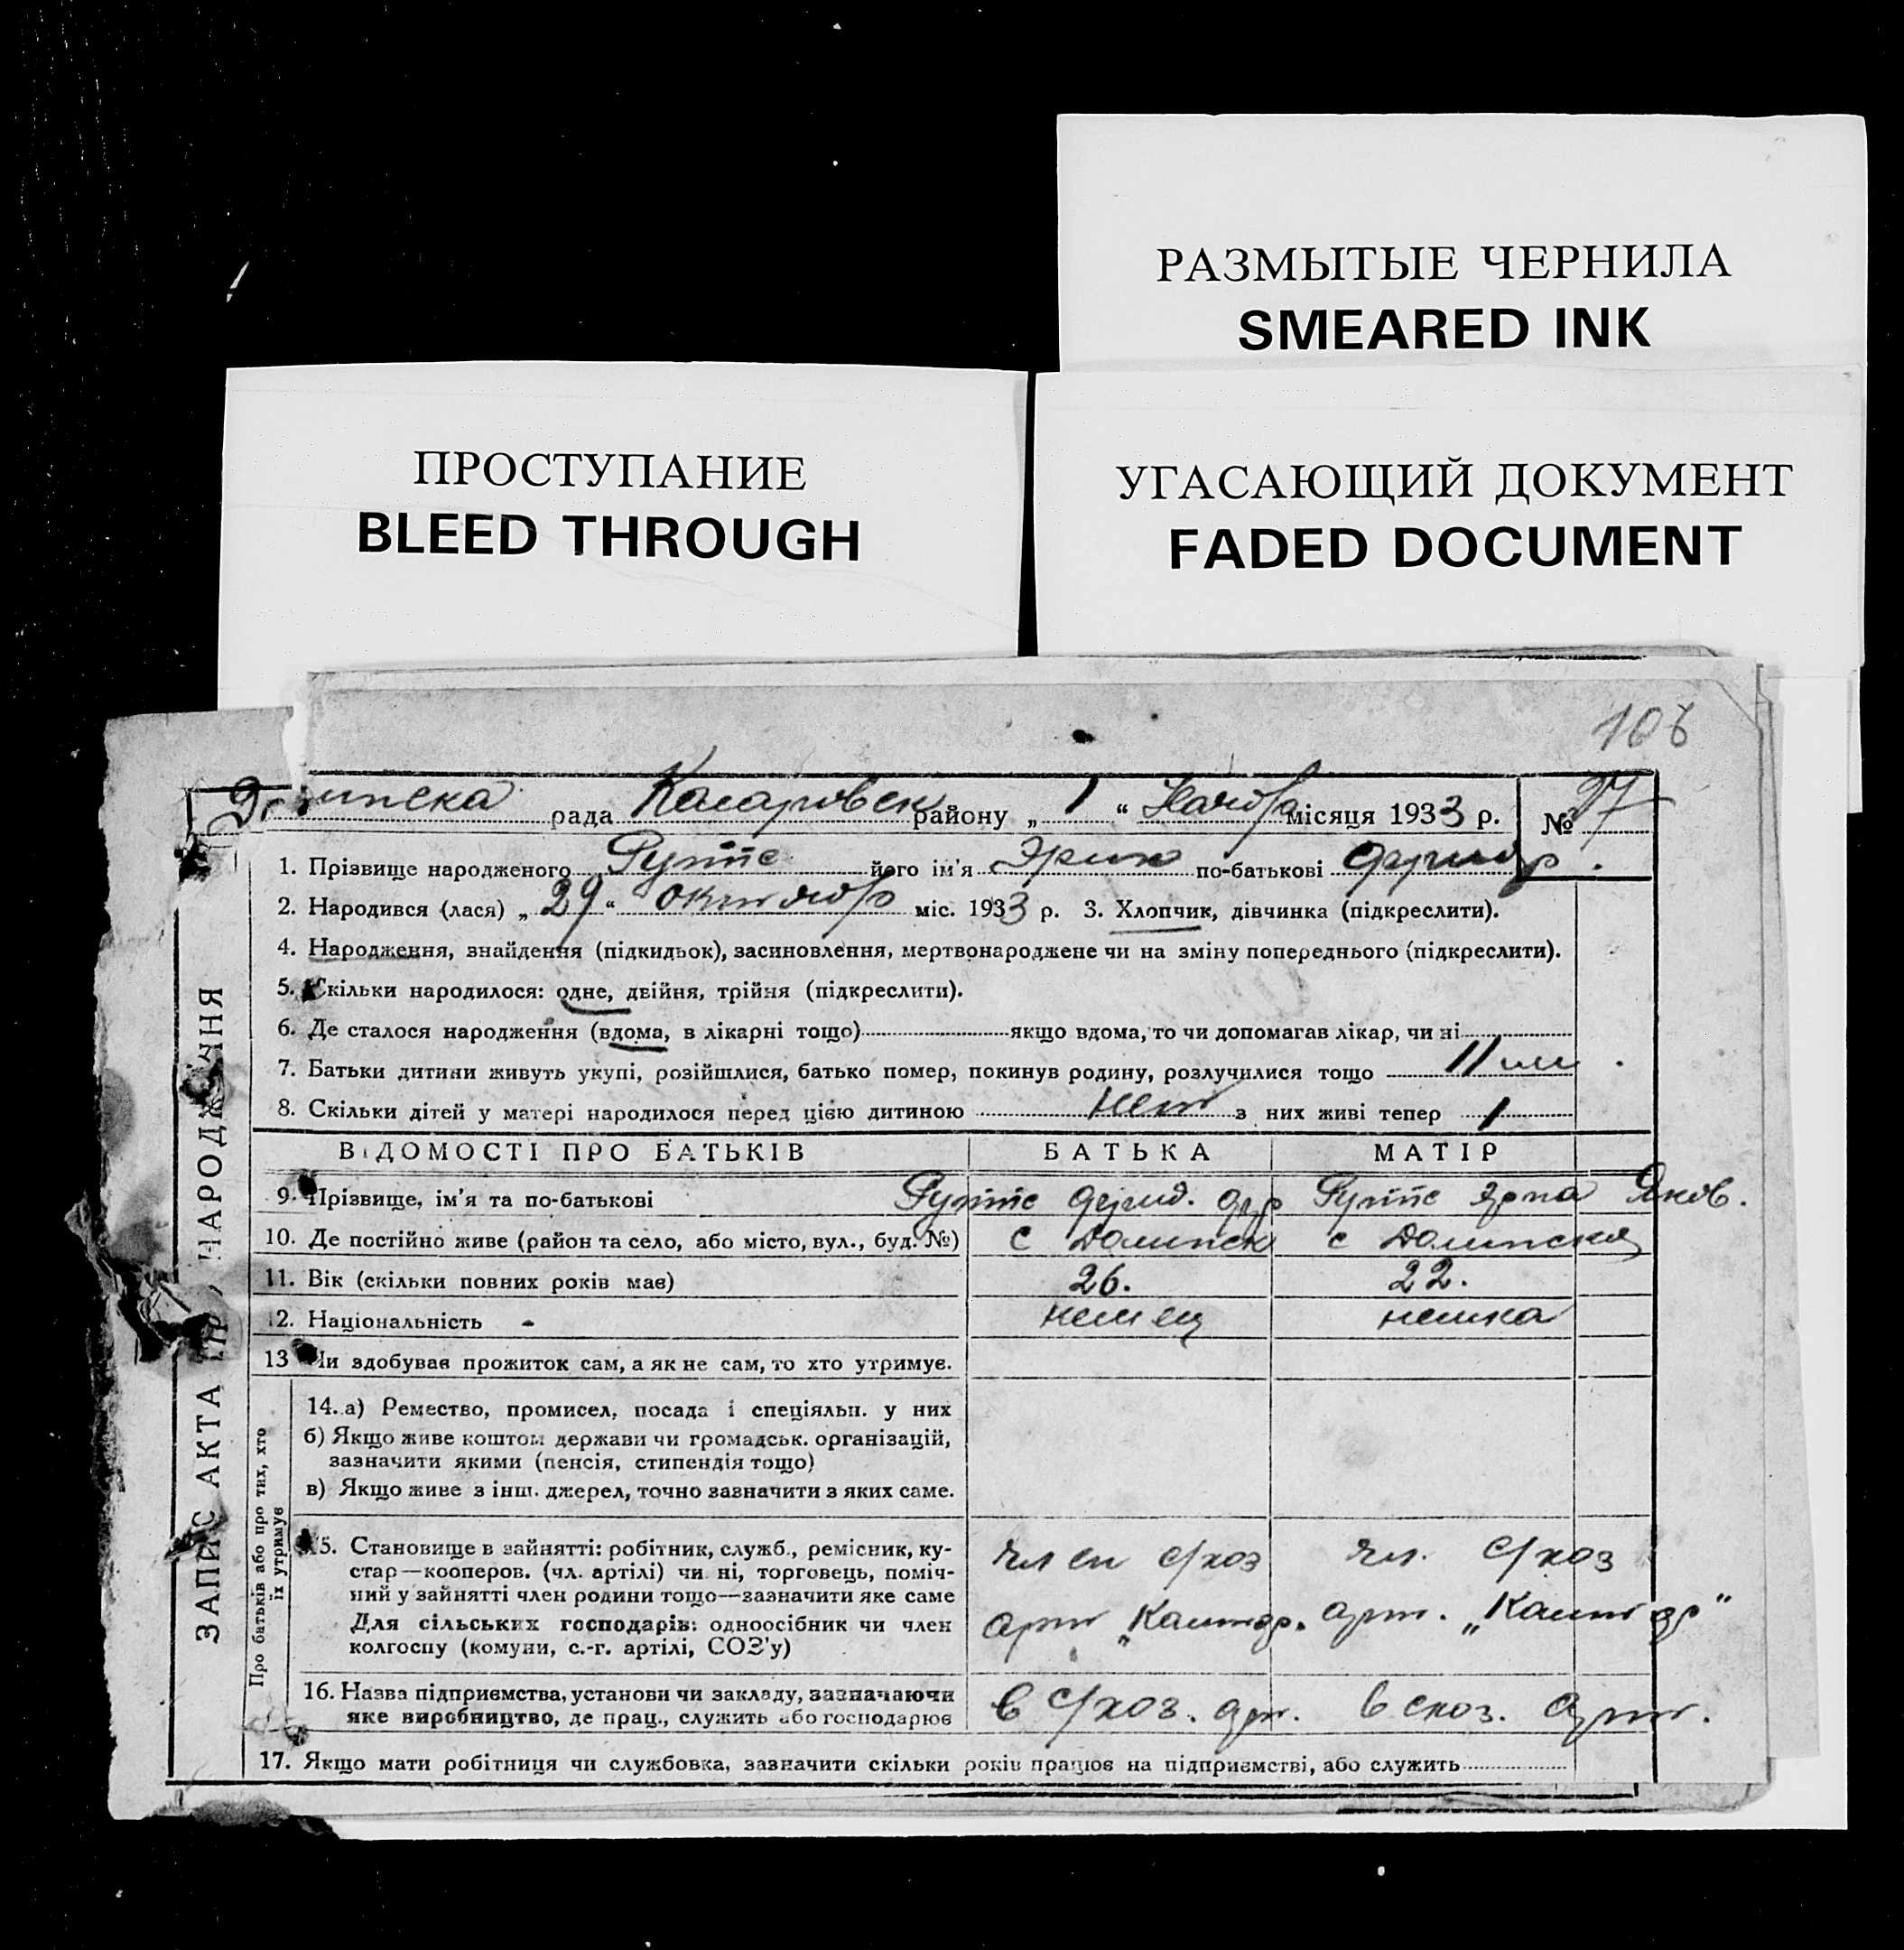 РАЗМЫТЫЕ ЧЕРНИЛА
SMEARED INK
ПРОСТУПАНИЕ
BLEED THROUGH
УГАСАЮЩИЙ ДОКУМЕНТ
FADED DOCUMENT
рада району „ 1 “ місяця 1933 р. № 97
1. Прізвище народженого його ім'я по-батькові
2. Народився (лася) „ 29 “ октября міс. 1933 р. 3. Хлопчик, дівчинка (підкреслити).
4. Народження, знайдення (підкидьок), засиновлення, мертвонароджене чи на зміну попереднього (підкреслити).
5. Скільки народилося: одне, двійня, трійня (підкреслити).
6. Де сталося народження (вдома, в лікарні тощо) якщо вдома, то чи допомагав лікар, чи ні
7. Батьки дитини живуть укупі, розійшлися, батько помер, покинув родину, розлучилися тощо
8. Скільки дітей у матері народилося перед цією дитиною нет з них живі тепер 1
ВІДОМОСТІ ПРО БАТЬКІВ БАТЬКА МАТІР
9. Прізвище, ім'я та по-батькові Яков.
10. Де постійно живе (район та село, або місто, вул., буд. №) с Долинск с Долинская
11. Вік (скільки повних років має) 26. 22.
12. Національність немец немка
13 Чи здобуває прожиток сам, а як не сам, то хто утримує.
14. а) Ремество, промисел, посада і спеціяльн. у них
б) Якщо живе коштом держави чи громадськ. організацій,
зазначити якими (пенсія, стипендія тощо)
в) Якщо живе з інш. джерел, точно зазначити з яких саме.
15. Становище в зайнятті: робітник, служб., ремісник, ку-
стар—кооперов. (чл. артілі) чи ні, торговець, поміч-
ний у зайнятті член родини тощо—зазначити яке саме
Для сільських господарів: одноосібник чи член
колгоспу (комуни, с.-г. артілі, СОЗ'у)
член с/хоз чл. с/хоз
арт арт.
16. Назва підприємства, установи чи закладу, зазначаючи
яке виробництво, де прац., служить або господарює
в с/хоз. арт. в схоз. арт.
17. Якщо мати робітниця чи службовка, зазначити скільки років працює на підприємстві, або служить
ЗАПИС АКТА ПРО НАРОДЖЕННЯ
Про батьків або про тих, хто
їх утримує